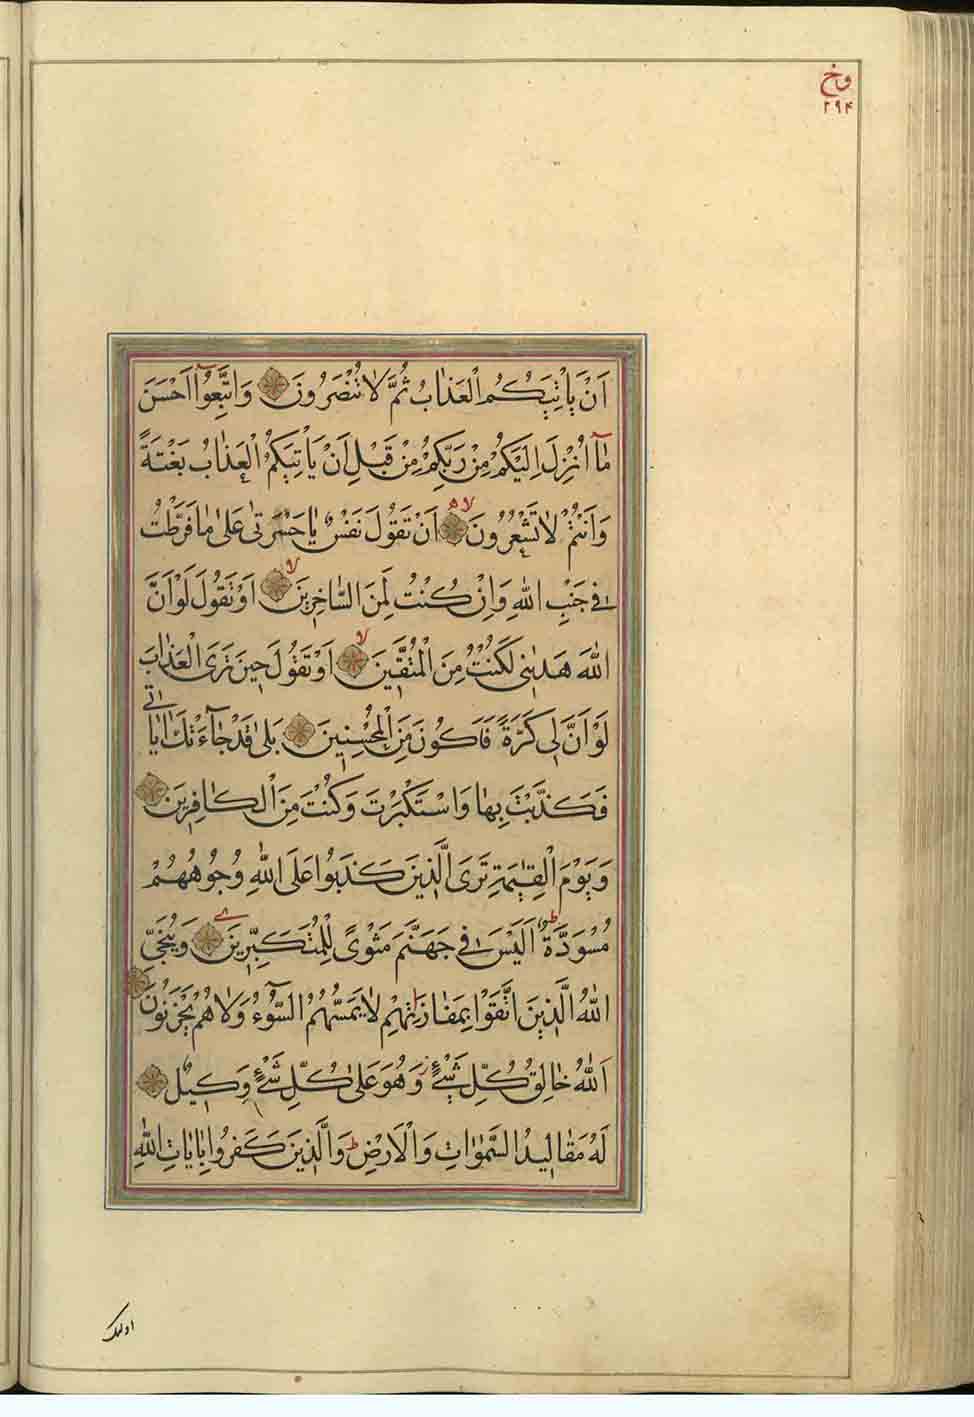 وخ
۲۹۴
اَنْ يَاْتِيَكُمُ الْعَذَابُ ثُمَّ لَا تُنْصَرُونَ وَاتَّبِعُوٓا اَحْسَنَ
مَآ اُنْزِلَ اِلَيْكُمْ مِنْ رَبِّكُمْ مِنْ قَبْلِ اَنْ يَاْتِيَكُمُ الْعَذَابُ بَغْتَةً
وَاَنْتُمْ لَا تَشْعُرُونَ اَنْ تَقُولَ نَفْسٌ يَا حَسْرَتٰى عَلٰى مَا فَرَّطْتُ
فِى جَنْبِ اللّٰهِ وَاِنْ كُنْتُ لَمِنَ السَّاخِرِينَ اَوْ تَقُولَ لَوْ اَنَّ
اللّٰهَ هَدٰينِى لَكُنْتُ مِنَ الْمُتَّقِينَ اَوْ تَقُولَ حِينَ تَرَى الْعَذَابَ
لَوْ اَنَّ لِى كَرَّةً فَاَكُونَ مِنَ الْمُحْسِنِينَ بَلٰى قَدْ جَآءَتْكَ اٰيَاتِى
فَكَذَّبْتَ بِهَا وَاسْتَكْبَرْتَ وَكُنْتَ مِنَ الْكَافِرِينَ
وَيَوْمَ الْقِيٰمَةِ تَرَى الَّذِينَ كَذَبُوا عَلَى اللّٰهِ وُجُوهُهُمْ
مُسْوَدَّةٌ اَلَيْسَ فِى جَهَنَّمَ مَثْوًى لِلْمُتَكَبِّرِينَ وَيُنَجِّى
اللّٰهُ الَّذِينَ اتَّقَوْا بِمَفَازَتِهِمْ لَا يَمَسُّهُمُ السُّوٓءُ وَلَا هُمْ يَحْزَنُونَ
اَللّٰهُ خَالِقُ كُلِّ شَىْءٍ وَهُوَ عَلٰى كُلِّ شَىْءٍ وَكِيلٌ
لَهُ مَقَالِيدُ السَّمٰوَاتِ وَالْاَرْضِ وَالَّذِينَ كَفَرُوا بِاٰيَاتِ اللّٰهِ
اولئك